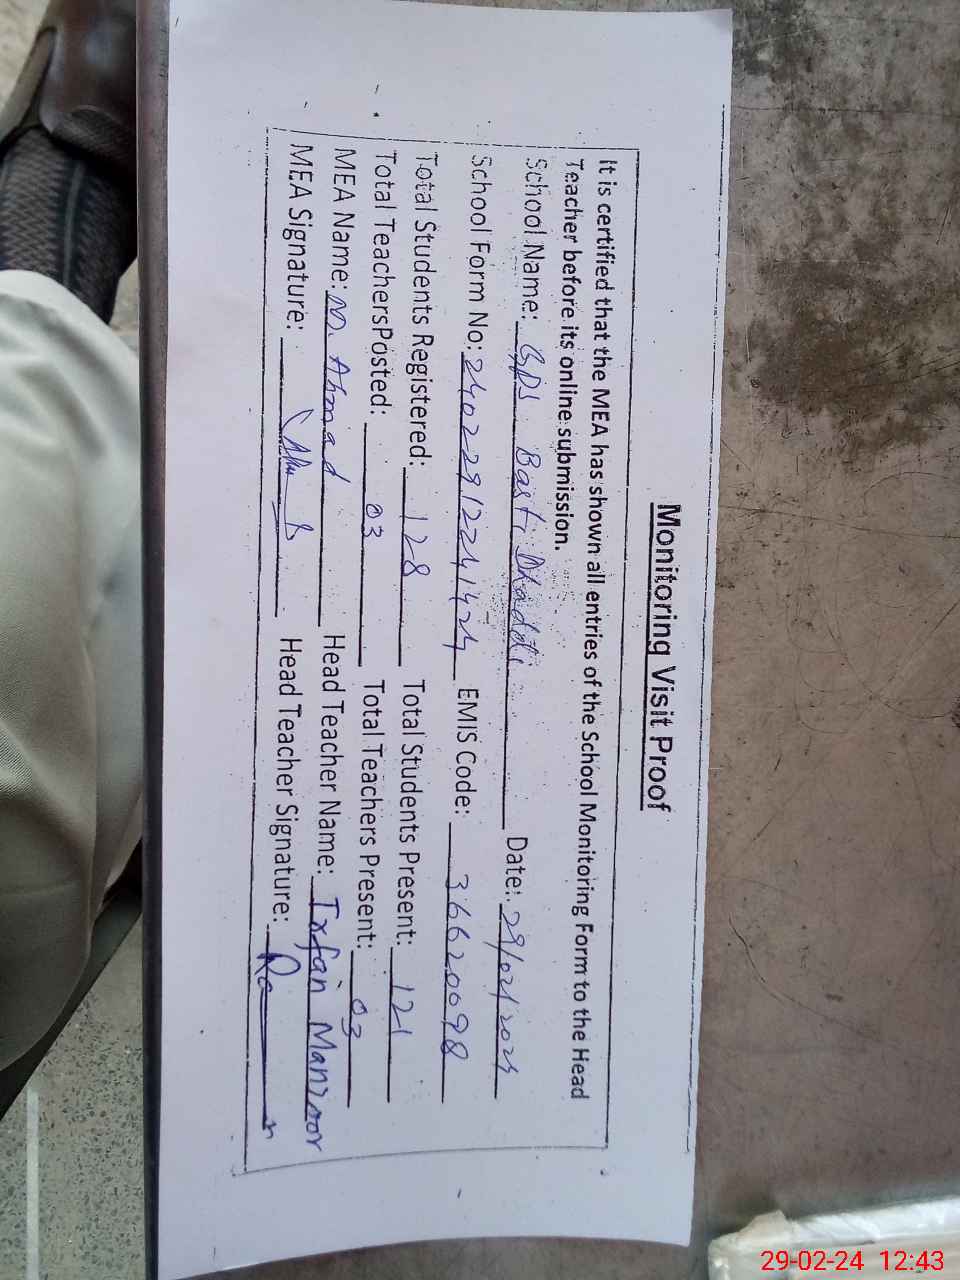 Monitoring Visit Proof
It is certified that the MEA has shown all entries of the School Monitoring Form to the Head
Teacher before its online submission.
School Name: GPS Basti Dhaddi Date: 29/02/2024
School Form No: 24022912241424 EMIS Code: 36620098
Total Students Registered: 128 Total Students Present: 121
Total TeachersPosted: 03 Total Teachers Present: 03
MEA Name: M. Ahmad Head Teacher Name: Irfan Manzoor
MEA Signature: Head Teacher Signature:
29-02-24 12:43